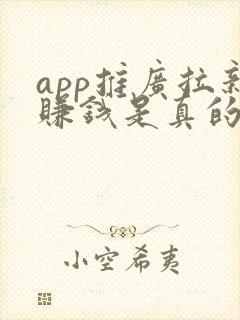 app推廣拉新
賺錢是真的
小空希夷